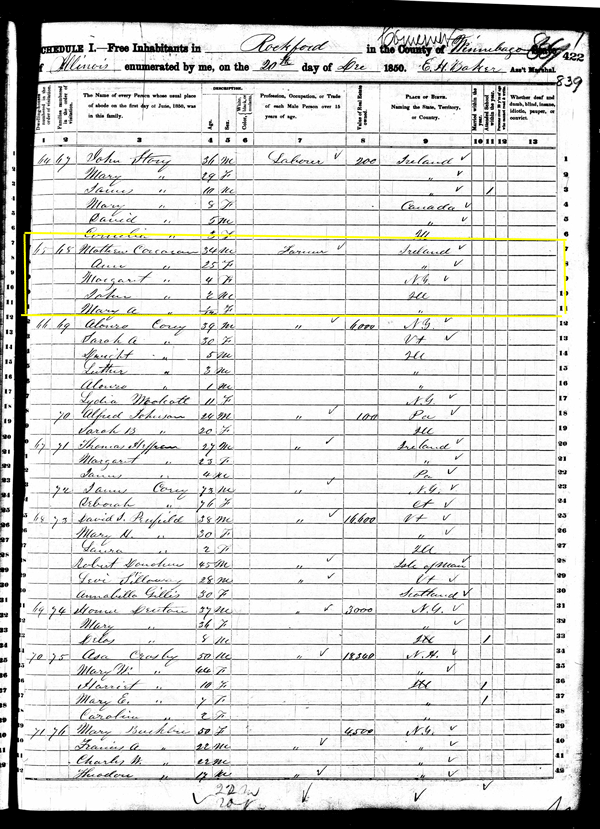 SCHEDULE I.—Free Inhabitants in Rockford in the County of Winnebago State
of Illinois enumerated by me, on the 20th day of Dec 1850. E. H. Baker Ass't Marshal.
422
839
Dwelling-houses numbered in the order of visitation.
Families numbered in the order of visitation.
The Name of every Person whose usual place of abode on the first day of June, 1850, was in this family.
DESCRIPTION.
Age.
Sex.
Profession, Occupation, or Trade of each Male Person over 15 years of age.
Value of Real Estate owned.
PLACE OF BIRTH. Naming the State, Territory, or Country.
Married within the year.
Attended School within the year.
Whether deaf and dumb, blind, insane, idiotic, pauper, or convict.
1 2 3 4 5 6 7 8 9 10 11 12 13
64 67 John Story 36 M Labourer 200 Ireland 1
Mary " 29 F " 2
James " 10 M " 1 3
Mary " 8 F Canada 4
David " 5 M " 5
Cornelia " 2 F Ill 6
65 68 Mathew Corcoran 34 M Farmer Ireland 7
Ann " 25 F " 8
Margaret " 4 F N.Y. 9
John " 2 M Ill 10
Mary A " F " 11
66 69 Alonzo Corey 39 M " 6000 N.Y. 12
Sarah A " 30 F Vt 13
Dwight " 5 M Ill 14
Luther " 3 M " 15
Alonzo " 1 M " 16
Lydia 11 F N.Y. 17
70 Alfred Johnson 24 M " 100 Pa 18
Sarah B " 20 F Ill 19
67 71 Thomas 27 M " Ireland 20
Margaret " 23 F " 21
James " 4 M Pa 22
72 James Corey 73 M " N.Y. 23
Deborah " 76 F Ct 24
68 73 David S. Penfield 38 M " 16,600 Vt 25
Mary H. " 30 F " 26
Laura " 2 F Ill 27
Robert Donohue 45 M " Isle of Man 28
Levi 28 M " Vt 29
Annabella Gillis 30 F Scotland 30
69 74 37 M " 3000 N.Y. 31
Mary " 36 F " 32
Delos " 8 M Ill 1 33
70 75 Asa Crosby 50 M " 18340 N.H. 34
Mary W. " 44 F " 35
Harriet " 10 F Ill 1 36
Mary E. " 7 F " 1 37
Caroline " 2 F " 38
71 76 Mary 50 F 4500 N.Y. 39
Francis A " 22 M " " 40
Charles W. " 22 M " 41
Theodore " 17 M " " 42